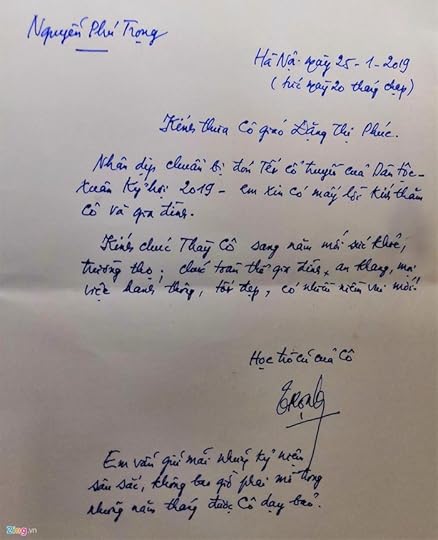 Nguyễn Phú Trọng
Hà Nội ngày 25-1-2019
(tức ngày 20 tháng chạp)
Kính thưa Cô giáo Đặng Thị Phúc.
Nhân dịp chuẩn bị đón Tết cổ truyền của Dân tộc -
Xuân Kỷ hợi 2019 - em xin có mấy lời kính thăm
Cô và gia đình.
Kính chúc Thầy Cô sang năm mới sức khỏe,
trường thọ; chúc toàn thể gia đình, an khang, mọi
việc hanh thông, tốt đẹp, có nhiều niềm vui mới.
Học trò cũ của Cô
Trọng
Em vẫn giữ mãi những kỷ niệm
sâu sắc, không bao giờ phai mờ trong
những năm tháng được Cô dạy bảo.
Zing.vn